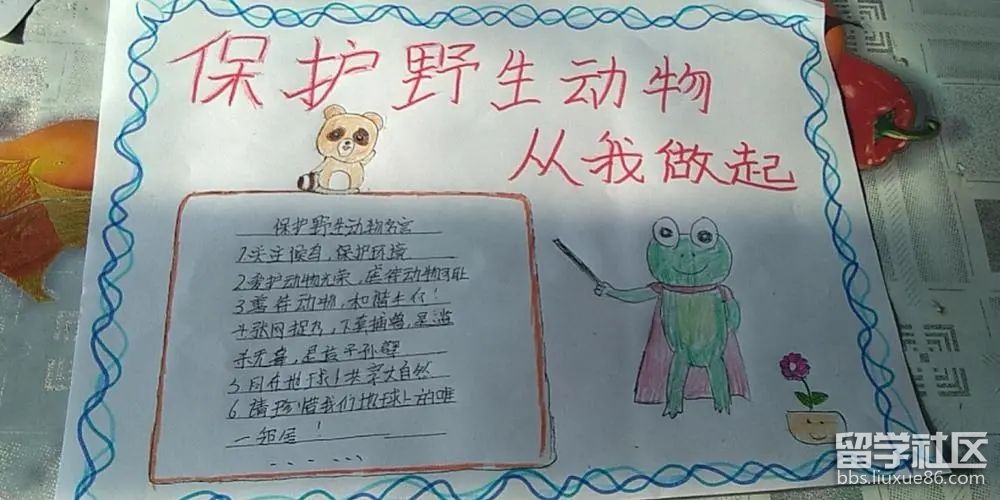 保护野生动物
从我做起
保护野生动物名言
1.关注候鸟,保护环境
2.爱护动物光荣,虐待动物可耻
3.善待动物,和谐生存!
4.张网捉鸟,下套捕兽,是滥
杀无辜,是孩子孙孽
5.同在地球!共享大自然
6.请珍惜我们地球上的唯
一邻居!
留学社区
bbs.liuxue86.com